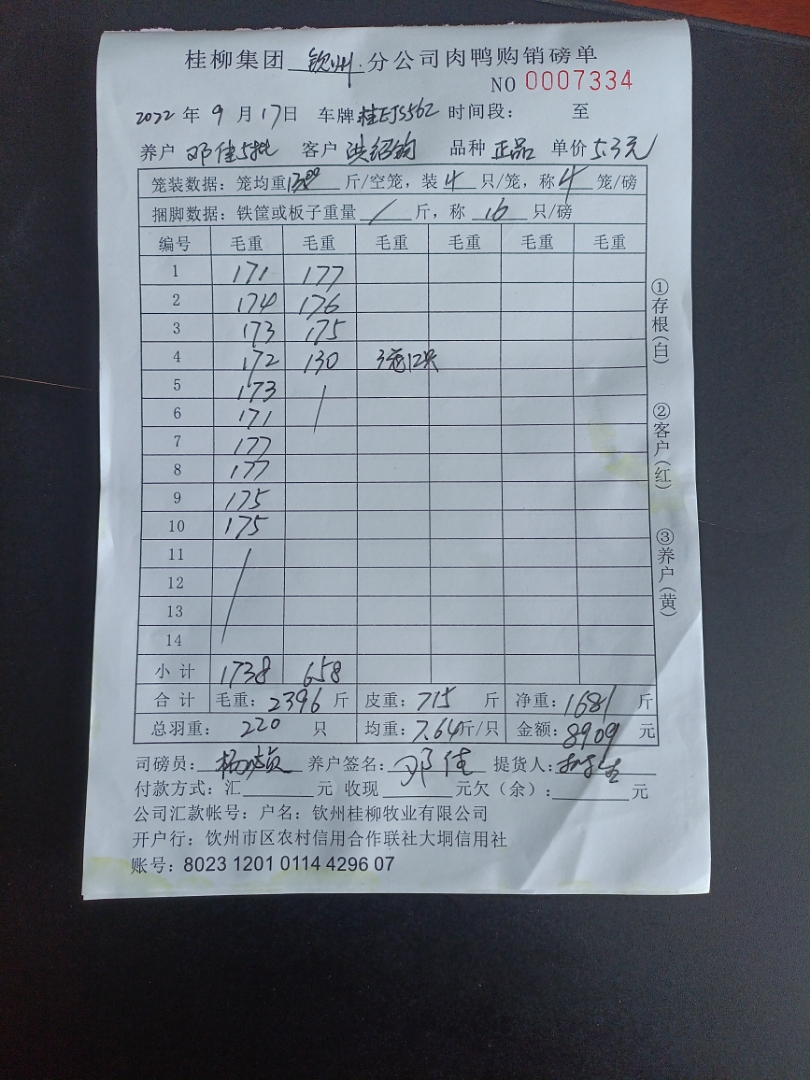 桂柳集团 钦州 分公司肉鸭购销磅单
NO 0007334
2022 年 9 月 17日 车牌 桂EJ5562 时间段: 至
养户 邓佳5批 客户 洪绍钧 品种 正品 单价 5.3元
笼装数据:笼均重 13 斤/空笼,装 4 只/笼,称 4 笼/磅
捆脚数据:铁筐或板子重量 / 斤,称 16 只/磅
编号 毛重 毛重 毛重 毛重 毛重 毛重
1 171 177
2 174 176
3 173 175
4 172 130 3笼12只
5 173 /
6 171
7 177
8 177
9 175
10 175
11 /
12
13
14
小计 1738 658
合计 毛重:2396 斤 皮重:715 斤 净重:1681 斤
总羽重: 220 只 均重:7.64斤/只 金额:8909 元
司磅员: 养户签名: 邓佳 提货人:
付款方式:汇 元 收现 元欠(余): 元
公司汇款帐号:户名:钦州桂柳牧业有限公司
开户行:钦州市区农村信用合作联社大垌信用社
账号:8023 1201 0114 4296 07
①存根(白)
②客户(红)
③养户(黄)